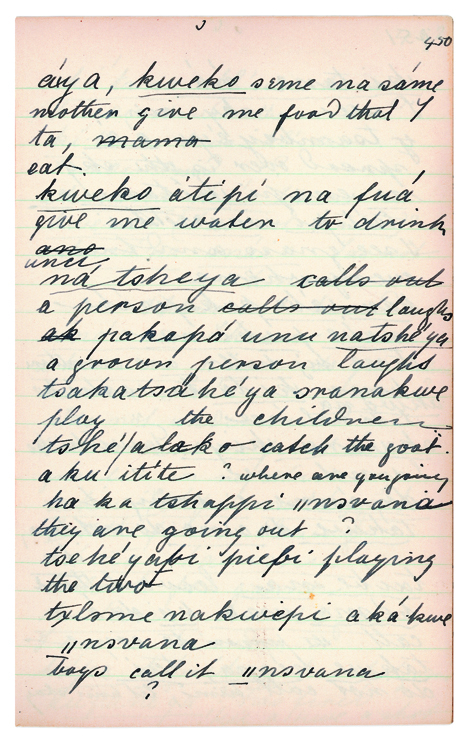 450
áiya, kweko seme na sáme
mother give me food that I
ta, mama
eat.
kweko átipí na fuá
give me water to drink
ano
unci
ná tsheya calls out
a person calls out laughs
ak pakapá unu natshéya
a grown person laughs
tsakatsáhéya sranakwe
play the children
tshé/alako catch the goat.
a ku itite ? where are you going
ha ka tshappi "nsvana
they are going out ?
tsehéyabi piebi playing
the two
txlsme nakwepi aká kwe
"nsvana
boys call it "nsvana
?